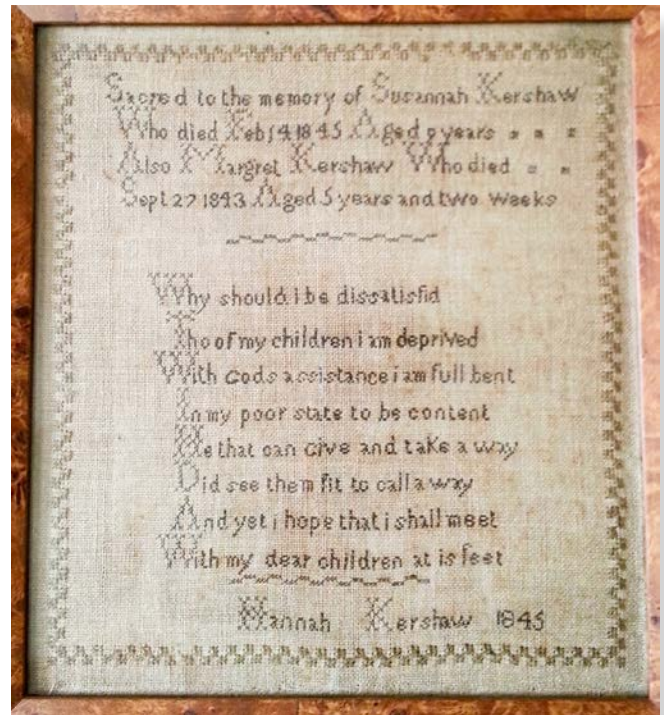 Sacred to the memory of Susannah Kershaw
Who died Feb 14 1845 Aged 9 years
Also Margret Kershaw Who died
Sept 27 1843 Aged 5 years and two weeks
Why should i be dissatisfid
Tho of my children i am deprived
With Gods assistance i am full bent
In my poor state to be content
He that can give and take a way
Did see them fit to call a way
And yet i hope that i shall meet
With my dear children at is feet
Hannah Kershaw 1845